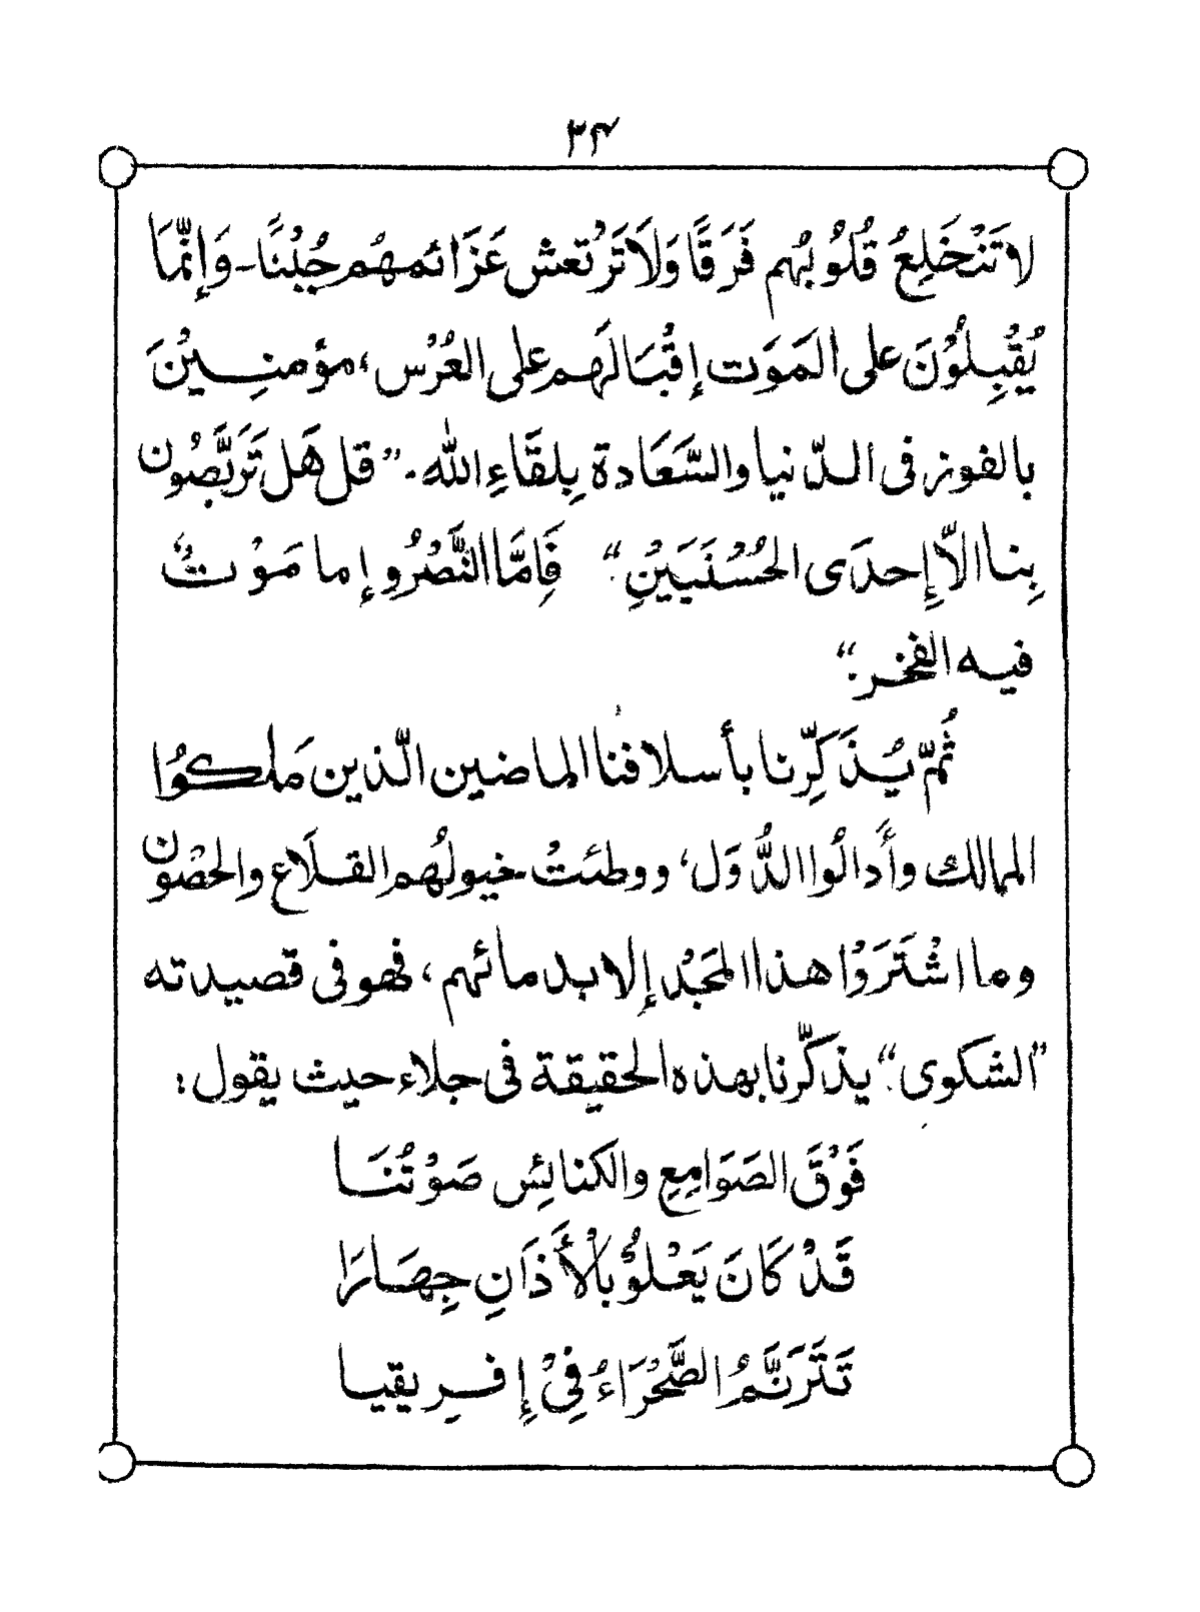 ۳۴
لا تَنْخَلِعُ قُلُوبُهم فَرَقًا وَلَا تَرْتعش عَزَائمهُم جُبْنًا - وَإنّمَا
يُقْبِلوُنَ على المَوَت إقْبَالَهم على العُرْس ، مؤمنِيْنَ
بالفوز فى الدّنيا والسَّعَادة بِلقَاءِ اللّٰه . ” قل هَل تَرَبَّصُون
بِنا الاّ إِحدَى الحُسْنَيَيْنِ . “ فَإِمَّا النَّصْرُ و إما مَوْتٌ
فيه الفخر . “
ثُمّ يُذَكِّرنا بأسلافنا الماضين الّذين مَلكوُا
الممالك وأَدالُوا الدُّوَل ، ووطئتُ خيولهُم القلَاع والحصْون
وما اشْتَرَوْا هذا المَجْد إلا بدمائهم ، فهو فى قصيدته
” الشكوى . “ يذكّرنا بهذه الحقيقة فى جلاء حيث يقول :
فَوْقَ الصَوَامِعِ والكنائِس صَوْتُنَا
قَدْ كَانَ يَعْلوُ بْالأَذَانِ جِهَارَا
تَتَرَنَّمُ الصَّحْرَاءُ فِيْ إِفرِيقيا